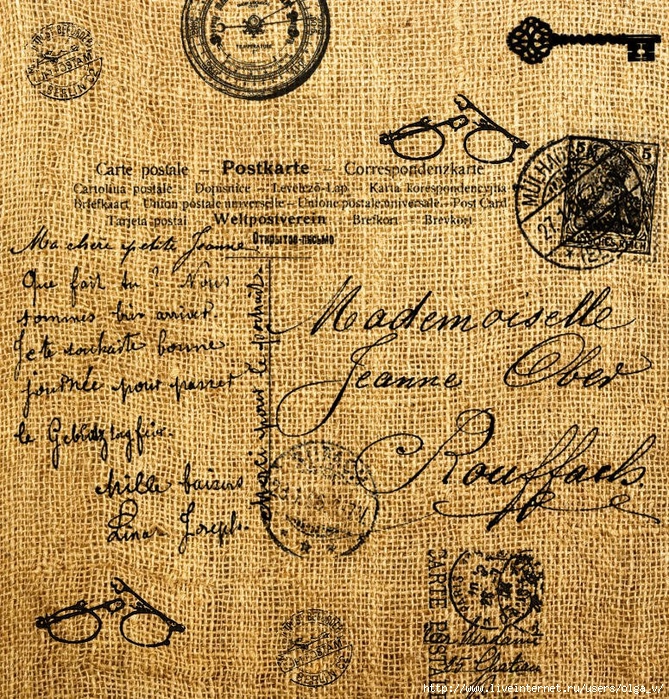 TEMPERATURE
BERLIN C.2
Carte postale – Postkarte – Correspondenzkarte
Cartolina postale – Dopisnice – Levelező-Lap – Karta korespondencyjna
Briefkaart – Union postale universelle – Unione postale universale – Post Card
Tarjeta postal – Weltpostverein – Brefkort – Brevkort
Открытое письмо
MÜLHAUSEN
5
Ma chère petite Jeanne
Que fait tu? Nous
sommes bis arriver.
Je te souhaite bonne
journée pour passer
le
Mille baisers
Lina Joseph.
Merci pour le portrait.
Mademoiselle
Jeanne Ober
Rouffach
CARTE POSTA
Madame
BERLIN C.2
http://www.liveinternet.ru/users/olga_vi